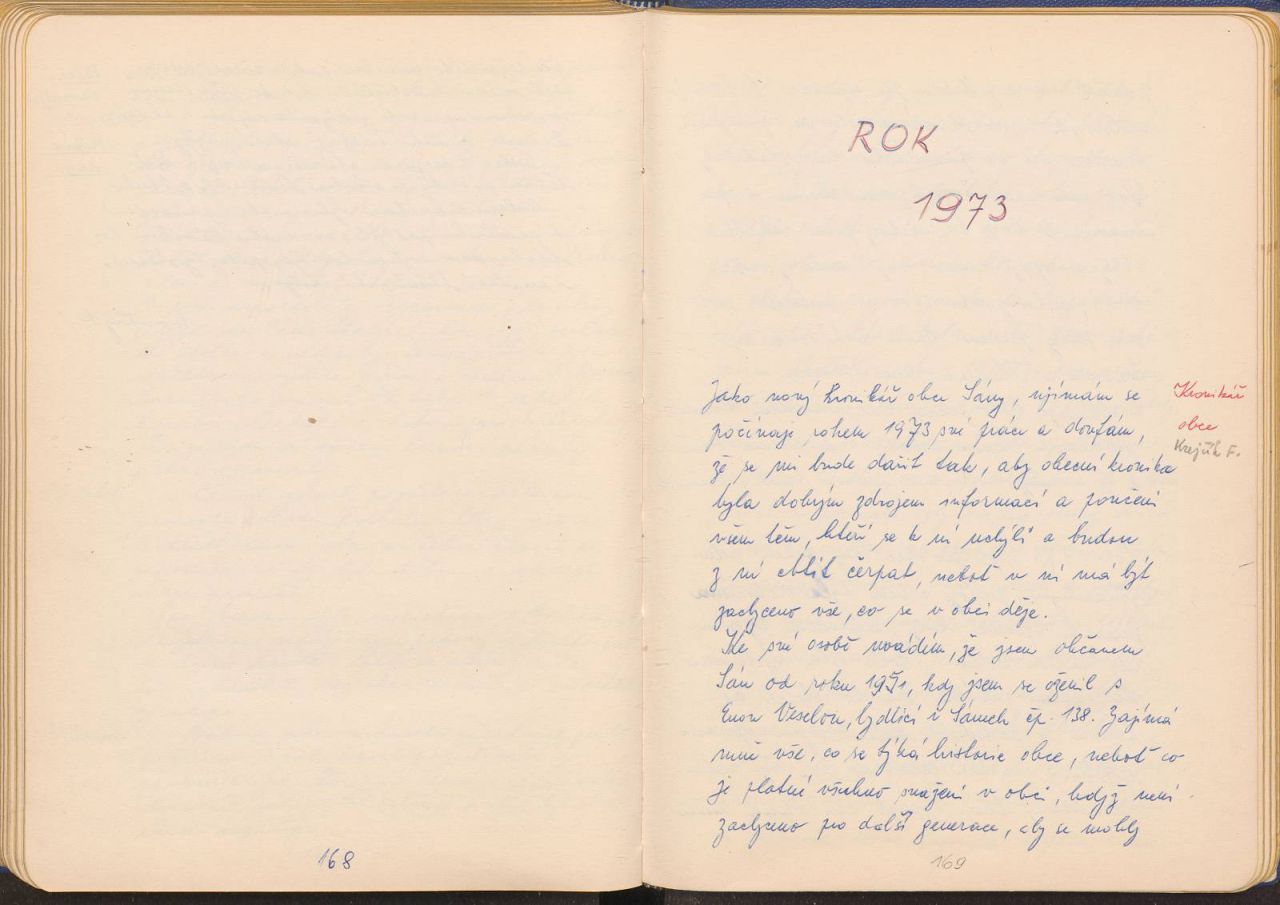 168
ROK
1973
Jako nový kronikář obce Sány, ujímám se
počínaje rokem 1973 své práce a doufám,
že se mi bude dařit tak, aby obecní kronika
byla dobrým zdrojem informací a poučení
všem těm, kteří se k ní uchýlí a budou
z ní chtít čerpat, neboť v ní má být
zachyceno vše, co se v obci děje.
Ke své osobě uvádím, že jsem občanem
Sán od roku 1971, kdy jsem se oženil s
Evou Veselou, bydlící v Sánech čp. 138. Zajímá
mně vše, co se týká historie obce, neboť co
je platné všechno snažení v obci, když není
zachyceno pro další generace, aby se mohly
Kronikář
obce
Krejčík F.
169